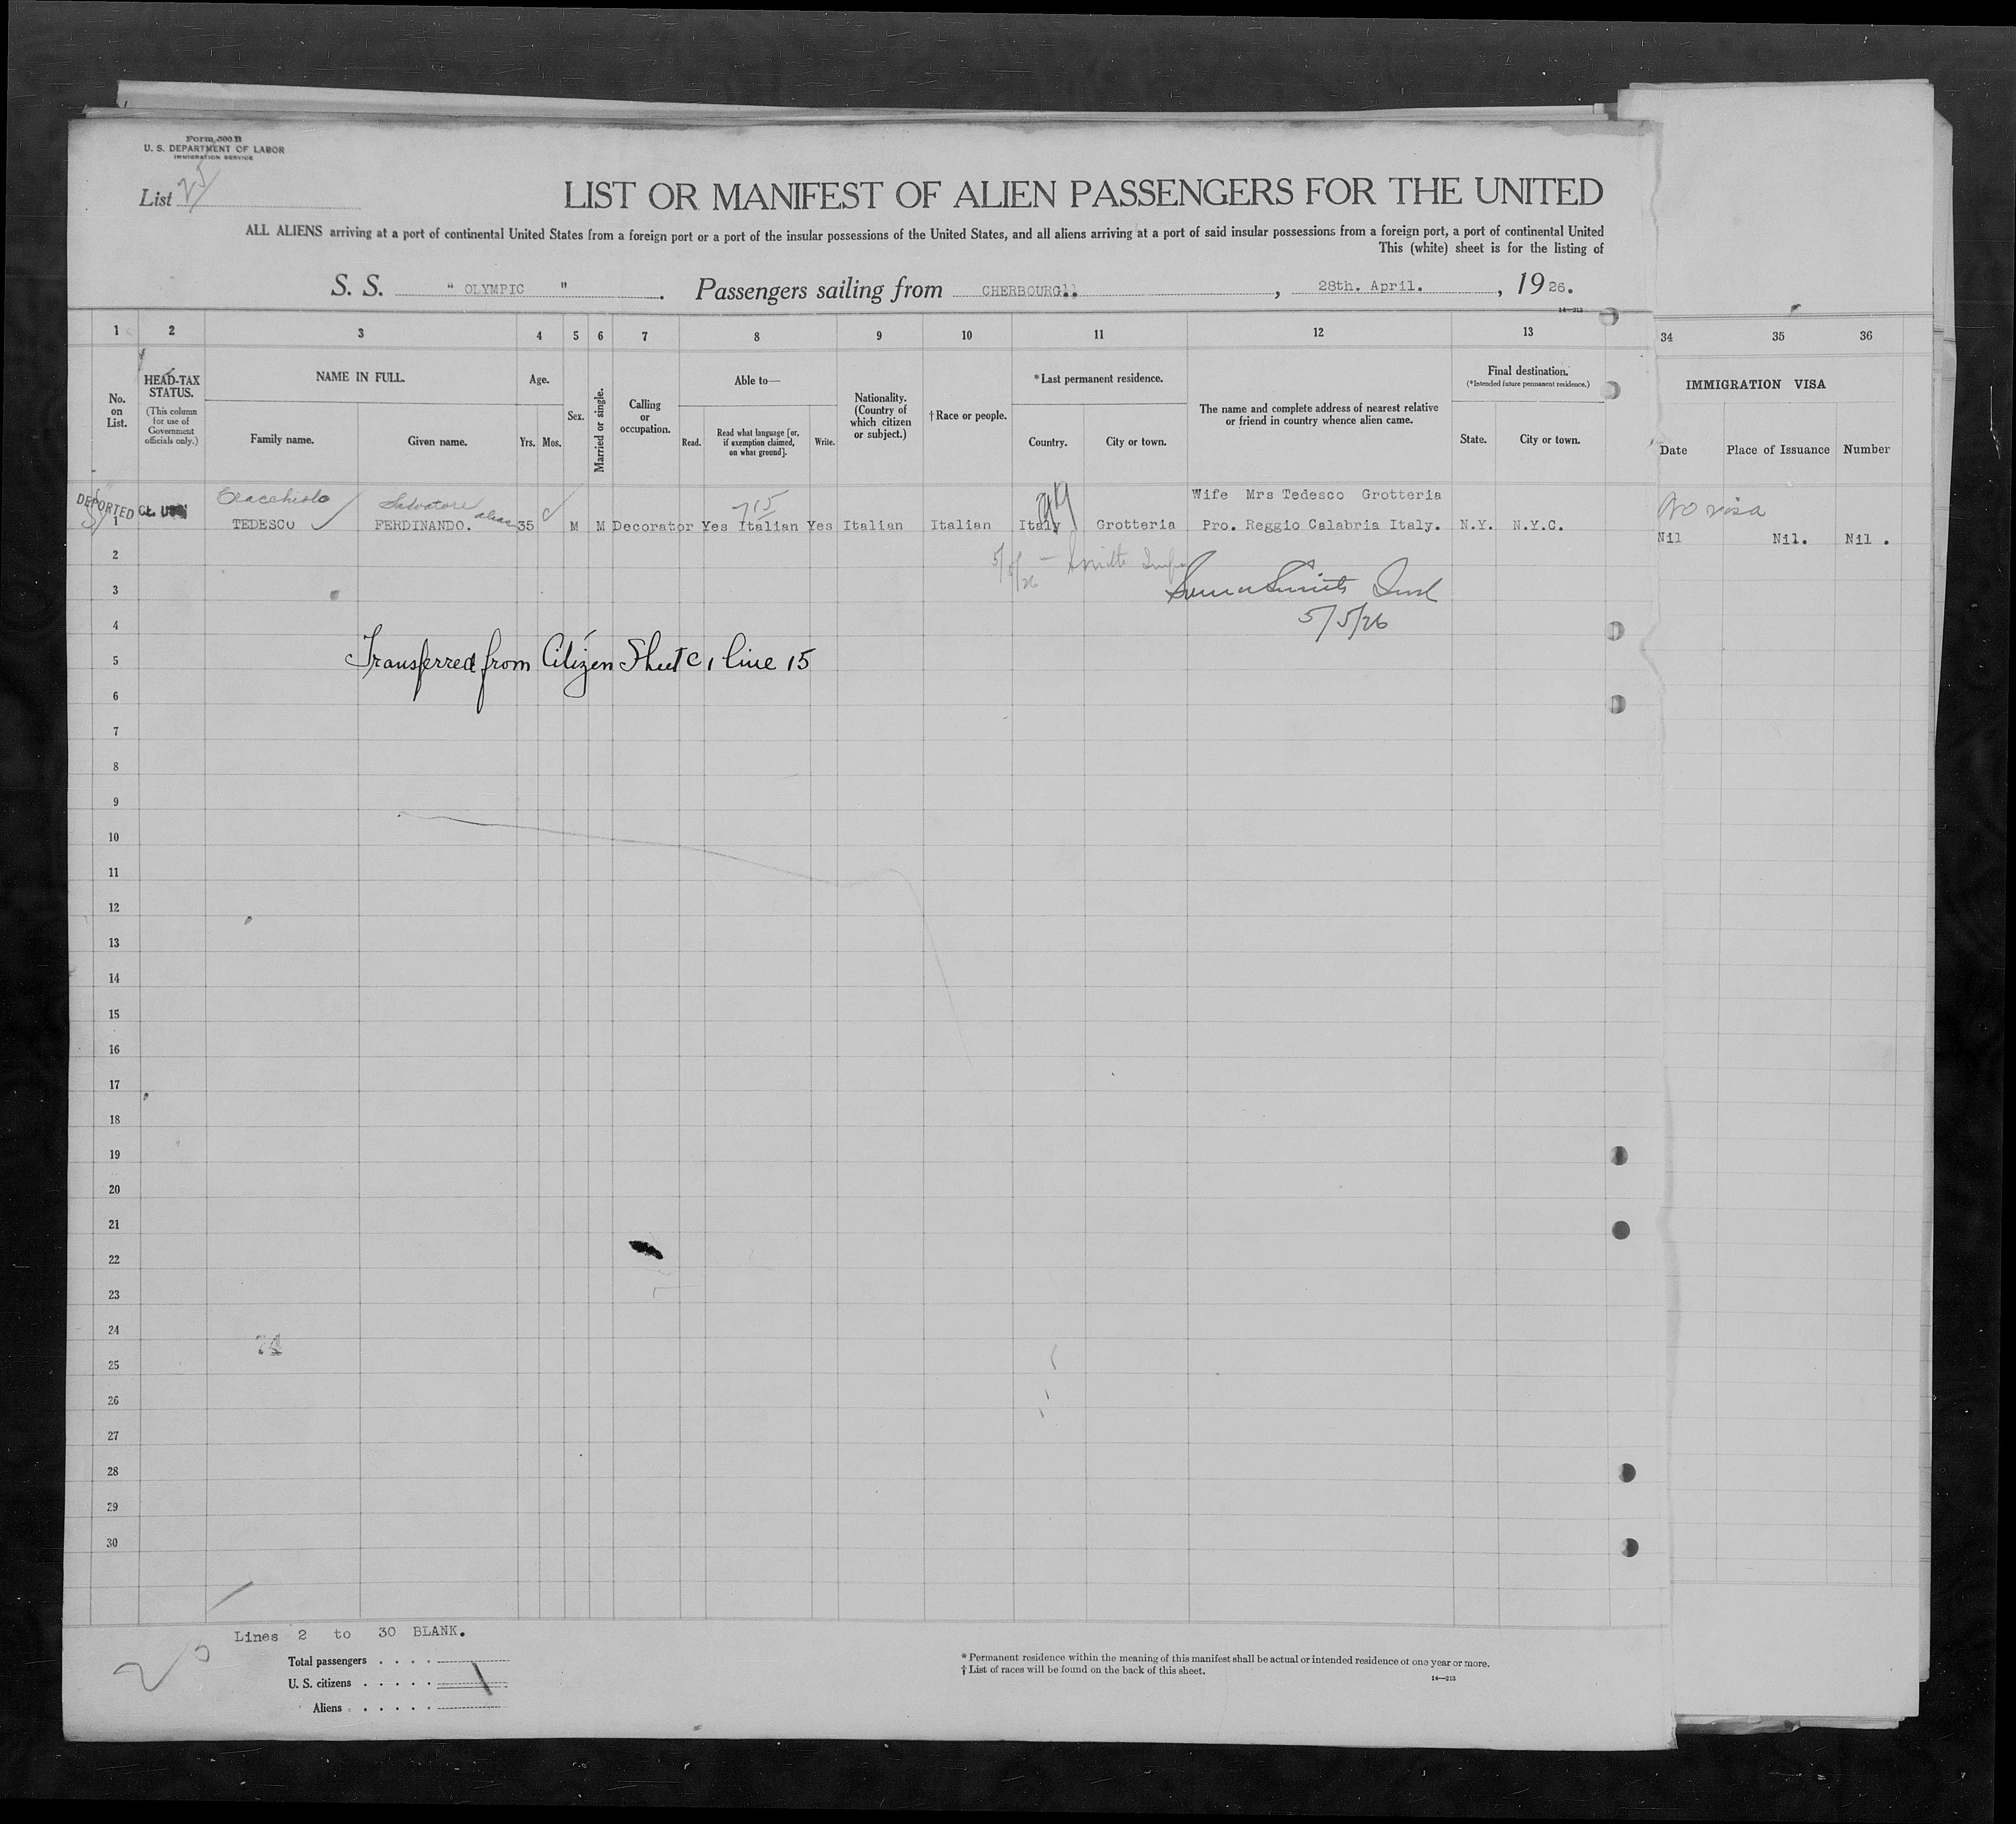 Form 500 B
U. S. DEPARTMENT OF LABOR
IMMIGRATION SERVICE
List 25
LIST OR MANIFEST OF ALIEN PASSENGERS FOR THE UNITED
ALL ALIENS arriving at a port of continental United States from a foreign port or a port of the insular possessions of the United States, and all aliens arriving at a port of said insular possessions from a foreign port, a port of continental United
This (white) sheet is for the listing of
S. S. " OLYMPIC " . Passengers sailing from CHERBOURG , 28th. April. , 19 26.
14—213
1 2 3 4 5 6 7 8 9 10 11 12 13 34 35 36
No. on List.
HEAD-TAX STATUS.
(This column for use of Government officials only.)
NAME IN FULL.
Family name. Given name.
Age.
Yrs. Mos.
Sex.
Married or single.
Calling or occupation.
Able to—
Read. Read what language [or, if exemption claimed, on what ground]. Write.
Nationality. (Country of which citizen or subject.)
†Race or people.
*Last permanent residence.
Country. City or town.
The name and complete address of nearest relative or friend in country whence alien came.
Final destination.
(*Intended future permanent residence.)
State. City or town.
IMMIGRATION VISA
Date Place of Issuance Number
DEPORTED
Salvatore alias
715
Wife Mrs Tedesco Grotteria
No visa
1 TEDESCO FERDINANDO. 35 M M Decorator Yes Italian Yes Italian Italian Italy Grotteria Pro. Reggio Calabria Italy. N.Y. N.Y.C.
Nil Nil. Nil .
2
5/5/26
3
4
5/5/26
5 Transferred from Citizen Sheet C 1 line 15
6
7
8
9
10
11
12
13
14
15
16
17
18
19
20
21
22
23
24
25
26
27
28
29
30
Lines 2 to 30 BLANK.
Total passengers . . . .
U. S. citizens . . . . .
Aliens . . . . .
* Permanent residence within the meaning of this manifest shall be actual or intended residence of one year or more.
† List of races will be found on the back of this sheet.
14—213